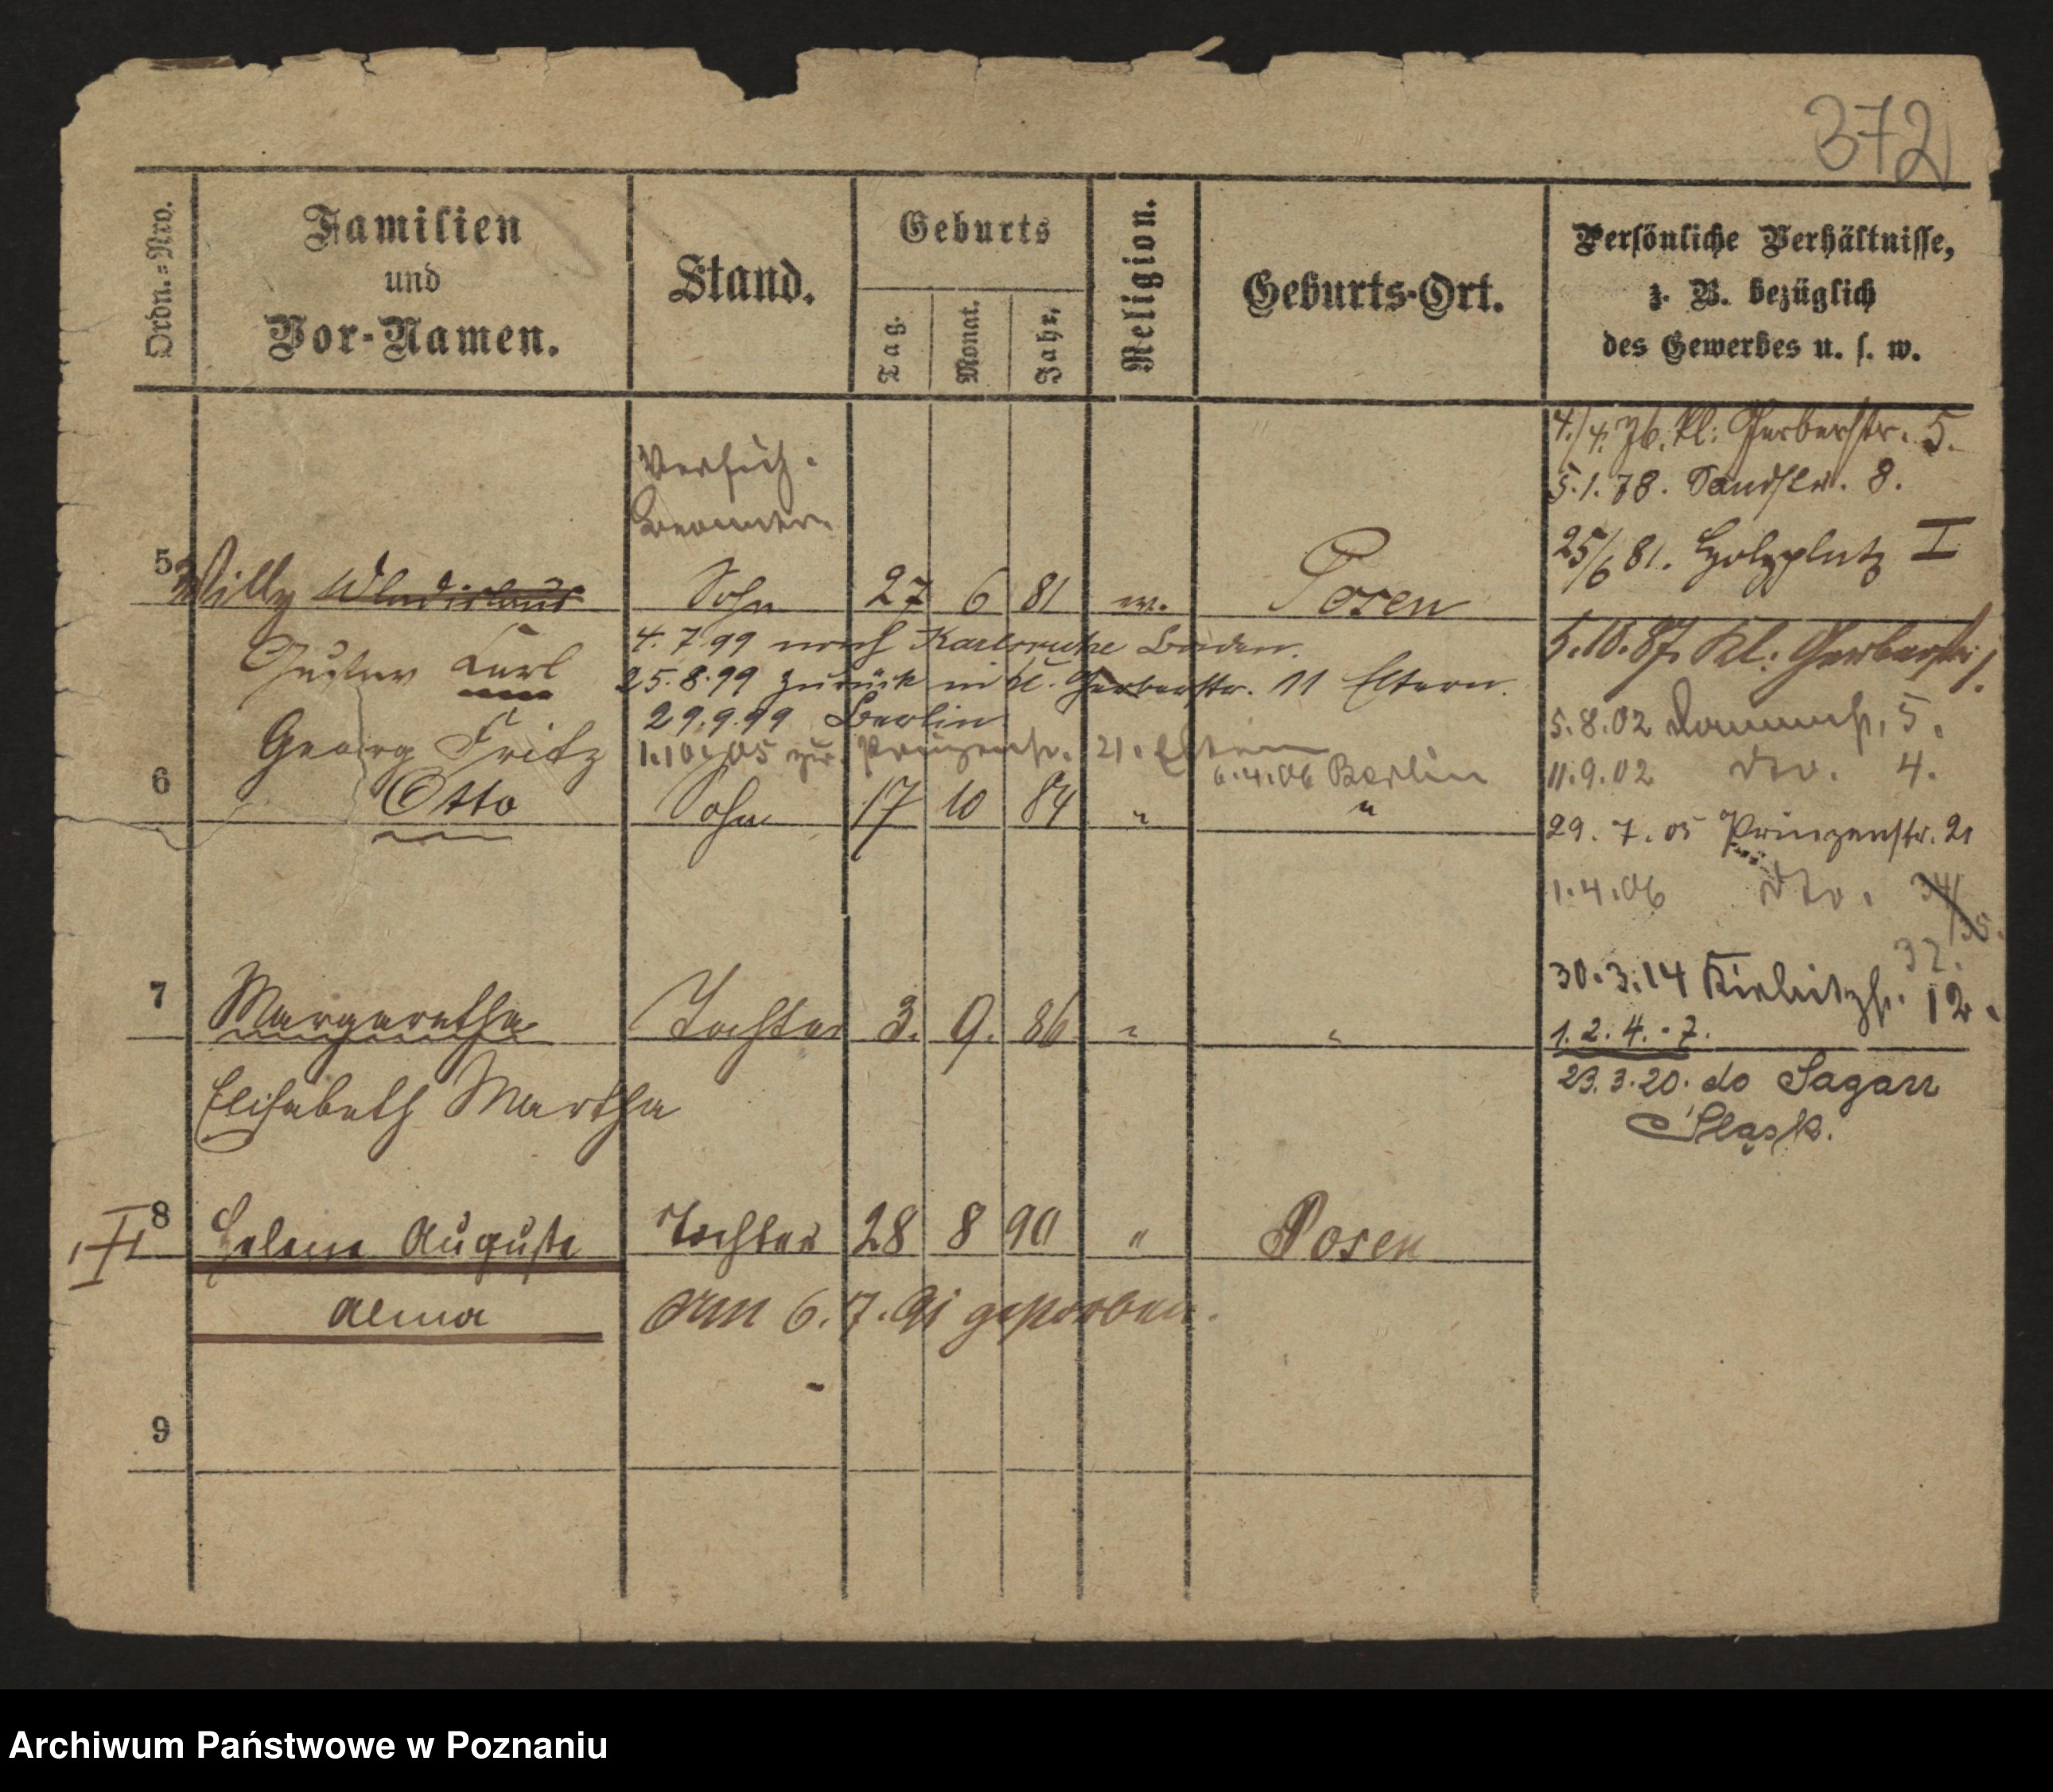 372
Ordn.=Nro.
Familien
und
Vor-Namen.
Stand.
Geburts
Tag.
Monat.
Jahr.
Religion.
Geburts-Ort.
Persönliche Verhältnisse,
z. B. bezüglich
des Gewerbes u. s. w.
4./4. 76. kl: Gerberstr. 5.
5.1.78. Sandstr. 8.
25/6 81. Holzplatz I
Versich.
Beamter
5 Willy Wladislaus Sohn 27 6 81 Posen
Gustav Curl
4.7.99 nach Karlsruhe Baden.
25.8.99 zurück in kl. Gerberstr. 11 Eltern.
29.9.99 Berlin
5.10.87. Kl: Gerberstr
Georg Fritz
1.10.05 zur. Prinzenstr. 21. Eltern
6.4.06 Berlin
6 Otto Sohn 17 10 84 " "
5.8.02 5.
11.9.02 dto. 4.
29.7.05 Prinzenstr. 21
1.4.06 dto. 34/35.
32.
30.3.14 12.
7 Margarethe Tochter 3. 9. 86 " "
1.2.4.-7.
Elisabeth Martha
23.3.20. do Sagan
Śląsk.
8 Helene Auguste Tochter 28 8 90 " Posen
Alma
Am 6.7.91 gestorben.
9
Archiwum Państwowe w Poznaniu